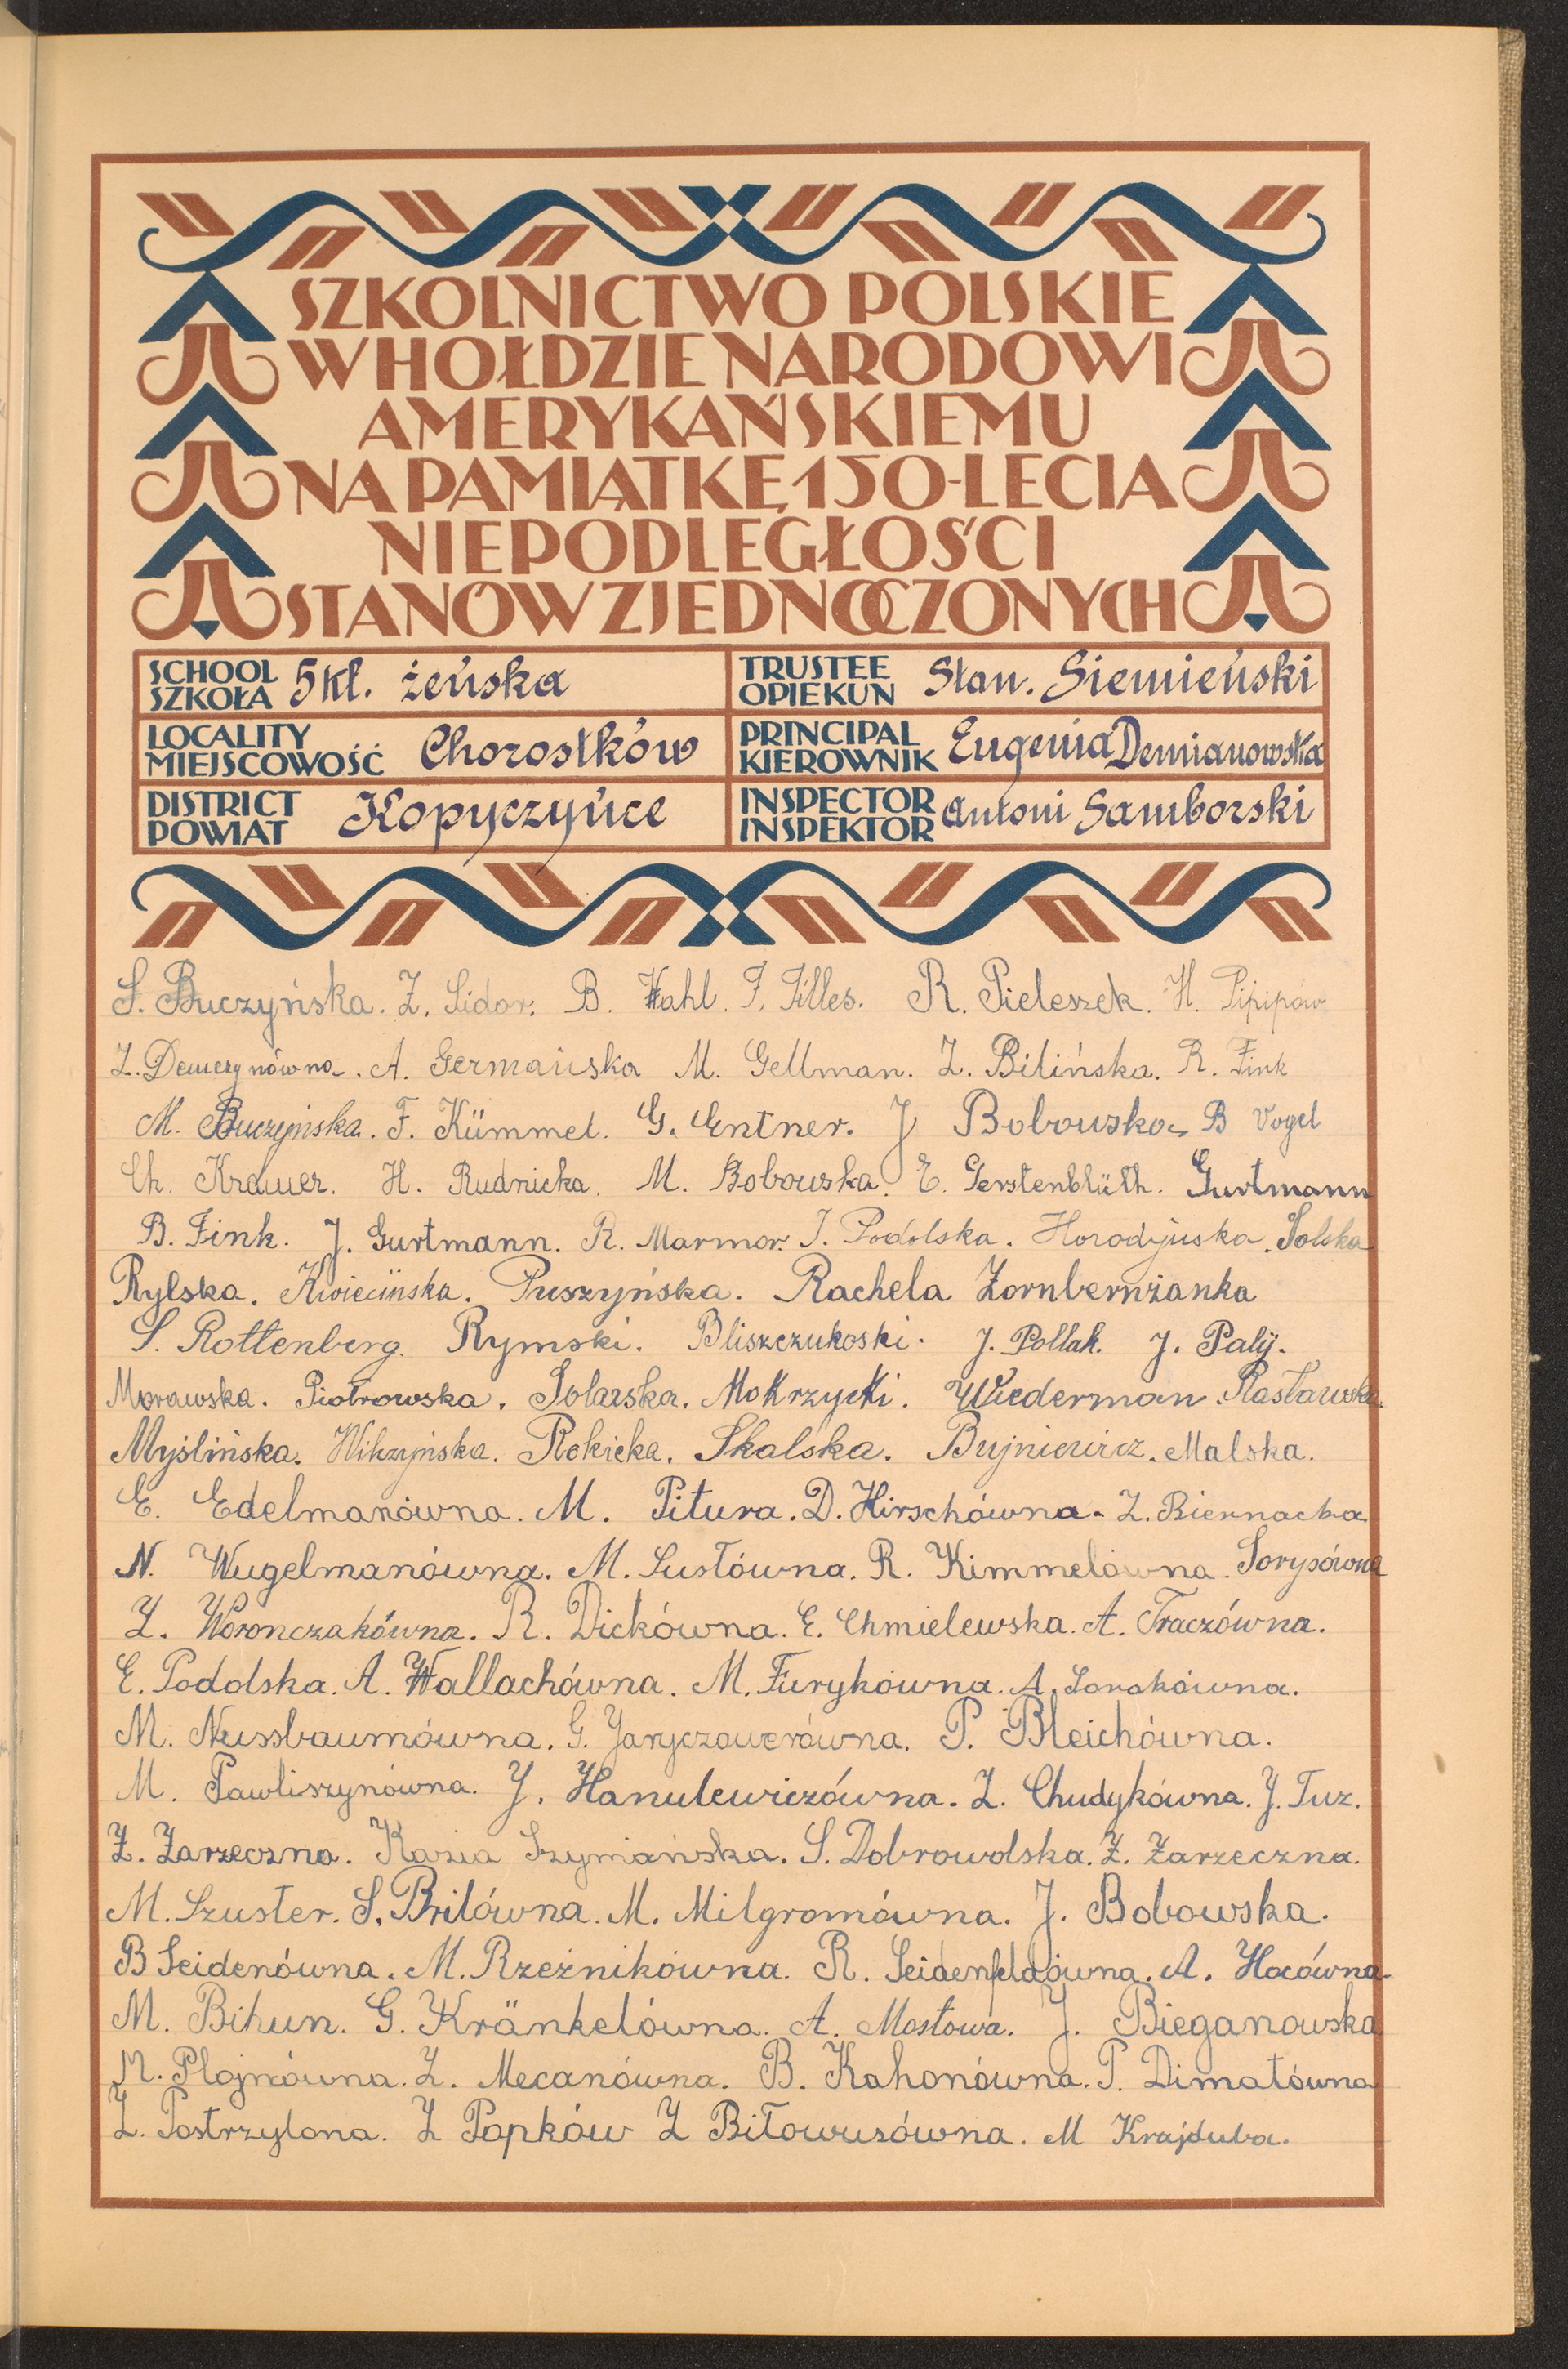 SZKOLNICTWO POLSKIE
W HOŁDZIE NARODOWI
AMERYKAŃSKIEMU
NA PAMIĄTKĘ 150-LECIA
NIEPODLEGŁOŚCI
STANÓW ZJEDNOCZONYCH
SCHOOL SZKOŁA 5 kl. żeńska
TRUSTEE OPIEKUN Stan. Siemieński
LOCALITY MIEJSCOWOŚĆ Chorostków
PRINCIPAL KIEROWNIK Eugenia Demianowska
DISTRICT POWIAT Kopyczyńce
INSPECTOR INSPEKTOR Antoni Samborski
S. Buczyńska. Z. Sidor. B. Wahl. F. Tilles. R. Pieleszek. H.
Z. A. Germańska M. Gellman. Z. Bilińska. R. Fink
M. Buczyńska. F. Kümmel. G. Entner. J Bobowska B Vogel
Ch. Kramer. H. Rudnicka. M. Bobowska. E. Gerstenblüth. Gurtmann
B. Fink. J. Gurtmann. R. Marmor. J. Podolska. Horodyńska. Solska
Rylska. Kwiecińska. Puszyńska. Rachela Zornbernżanka
S. Rottenberg. Rymski. Bliszczukoski. J. Pollak. J. Palij.
Morawska. Piotrowska. Solarska. Mokrzycki. Wiederman. Rasławska.
Myślińska. Wilczyńska. Rokicka. Skalska. Bujniewicz. Malska.
E. Edelmanówna. M. Pitura. D. Hirschówna. Z. Biernacka
N. Wugelmanówna. M. Susłówna. R. Kimmelówna. Sorysówna
Z. Worończakówna. R. Dickówna. E. Chmielewska. A. Traczówna.
E. Podolska. A. Wallachówna. M. Furykówna. A. Sorokówna.
M. Nussbaumówna. G. Jaryczowerówna. P. Bleichówna.
M. Pawliszynówna. J. Hanulewiczówna. Z. Chudykówna. J. Tuz.
Z. Zarzeczna. Kazia Szymańska. S. Dobrowolska. Z. Zarzeczna.
M. Szuster. S. Brilówna. M. Milgromówna. J. Bobowska.
B Seidenówna. M. Rzeźnikówna. R. Seidenfeldówna. A. Hocówna.
M. Bihun. G. Kränkelówna. A. Mostowa. J. Bieganowska
M. Plojnówna. Z. Mecanówna. B. Kahonówna. P. Dimatówna
Z. Postrzylona. Z Popków Z Biłowusówna. M Krajduba.